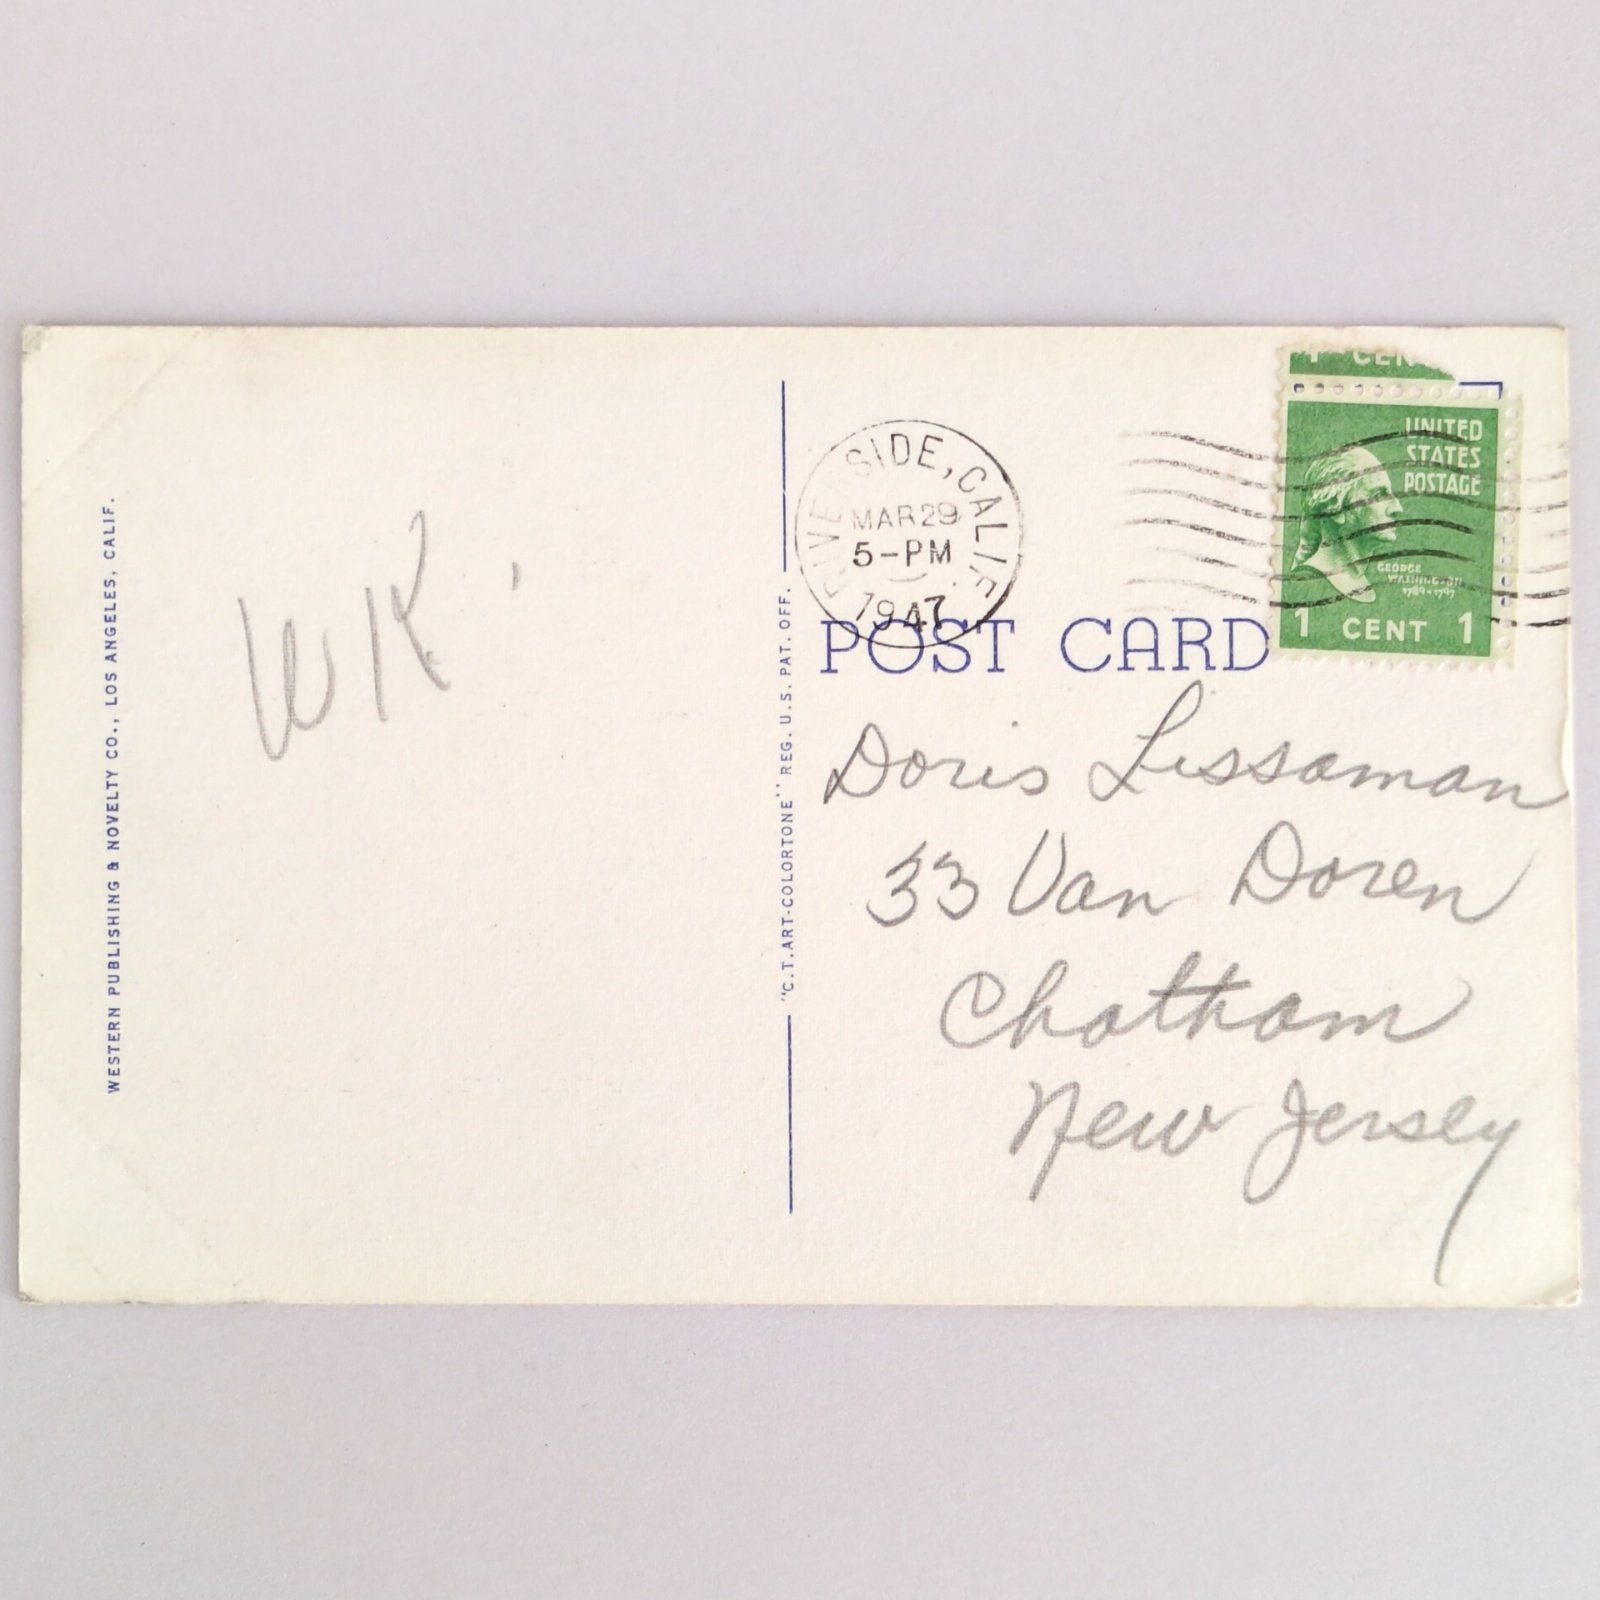 WESTERN PUBLISHING & NOVELTY CO., LOS ANGELES, CALIF.
WR.
"C.T. ART-COLORTONE" REG. U.S. PAT. OFF.
RIVERSIDE, CALIF.
MAR 29
5-PM
1947
1 CEN
UNITED
STATES
POSTAGE
GEORGE
WASHINGTON
1789-1797
1 CENT 1
POST CARD
Doris Lissaman
33 Van Doren
Chatham
New Jersey